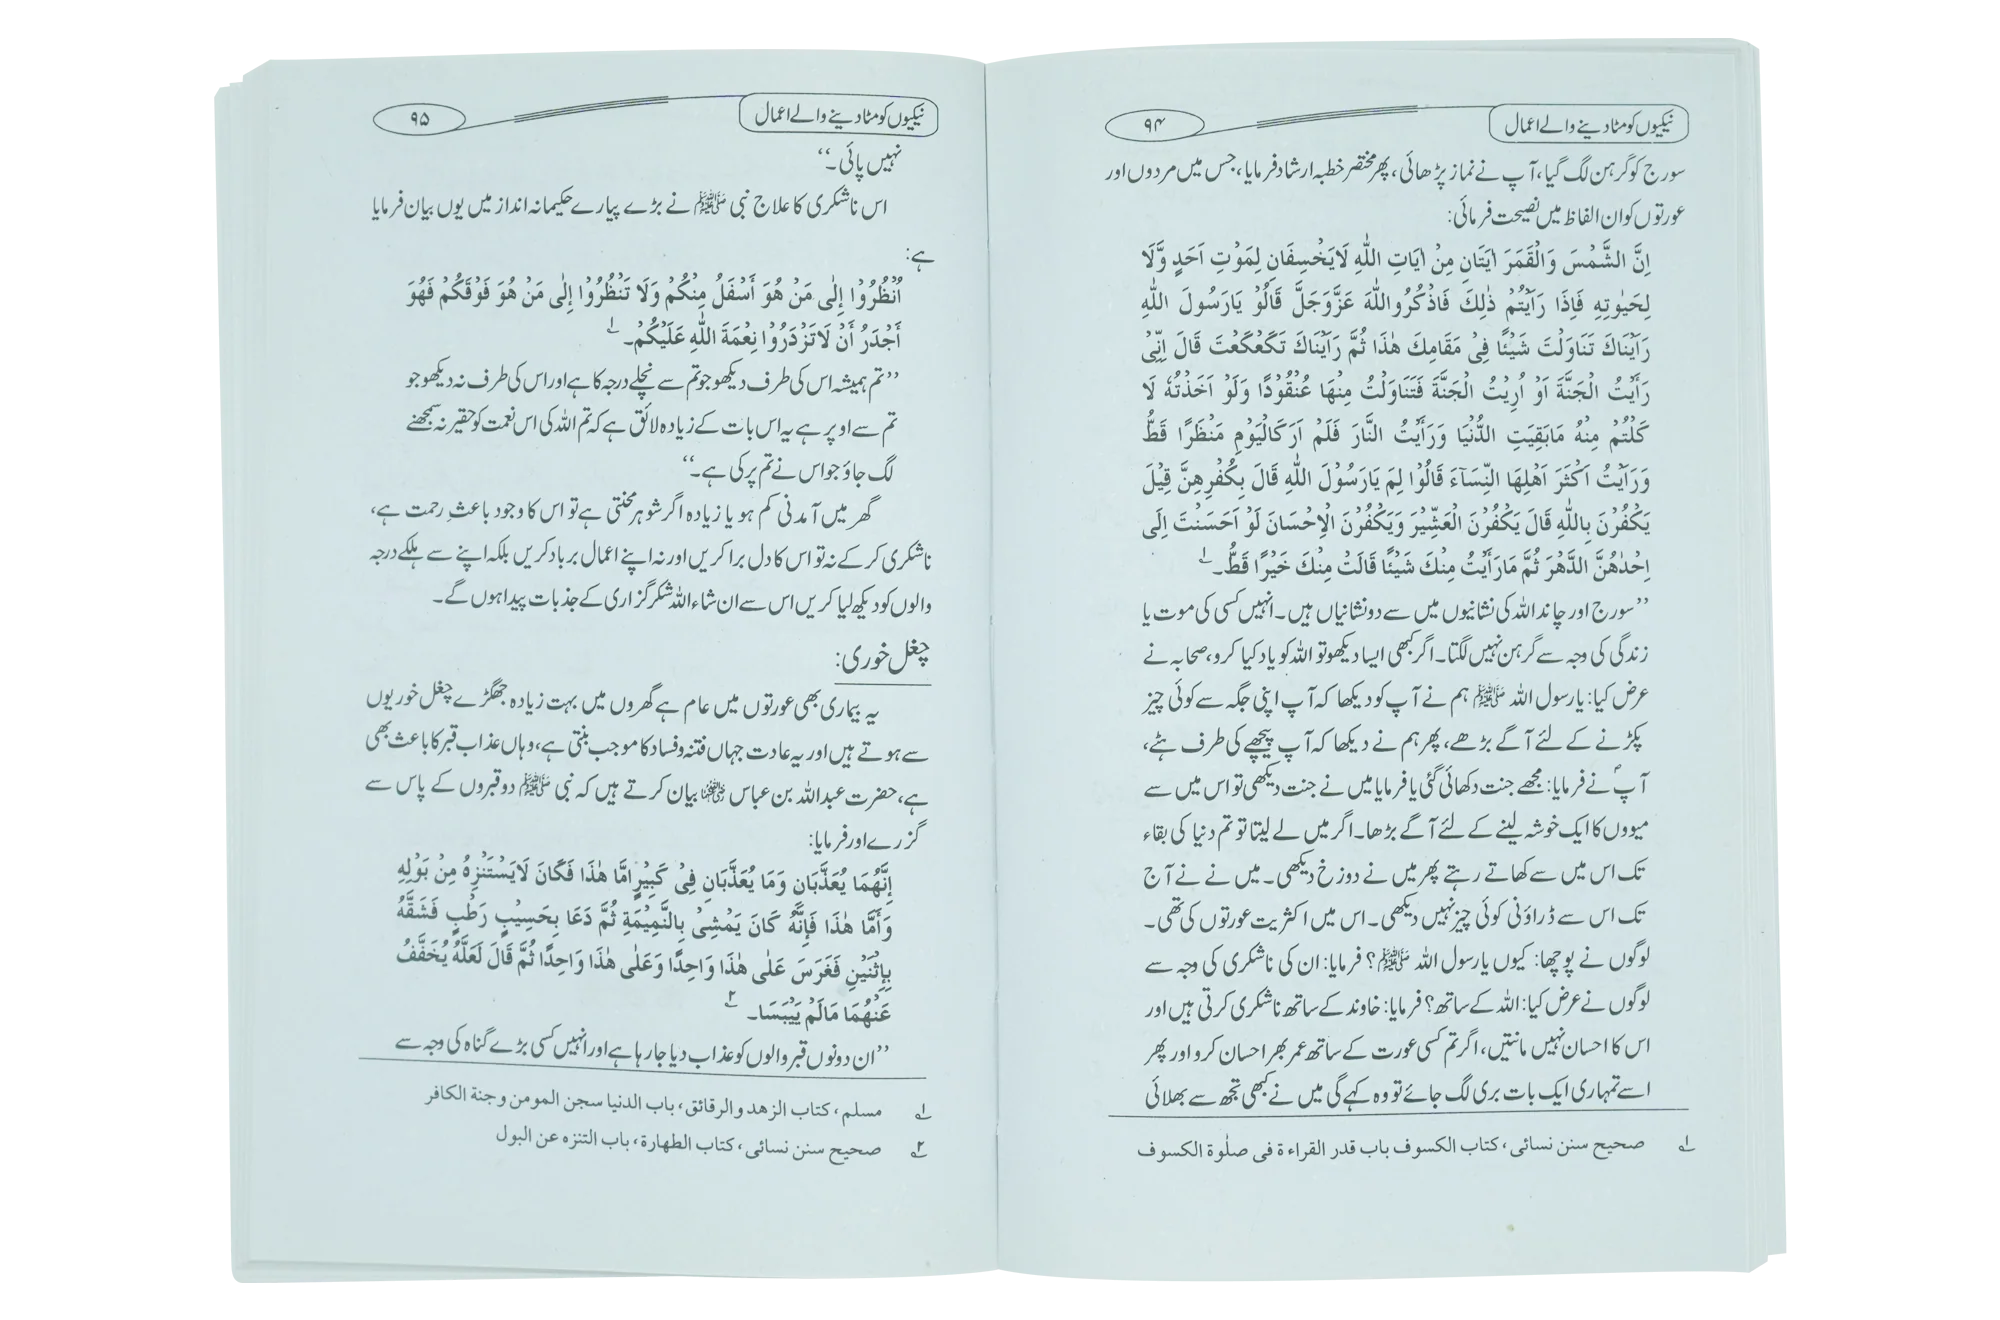 نیکیوں کو مٹا دینے والے اعمال
۹۴
سورج کو گرہن لگ گیا، آپ نے نماز پڑھائی، پھر مختصر خطبہ ارشاد فرمایا، جس میں مردوں اور
عورتوں کو ان الفاظ میں نصیحت فرمائی:
اِنَّ الشَّمْسَ وَالْقَمَرَ اٰیَتَانِ مِنْ اٰیَاتِ اللّٰهِ لَایَخْسِفَانِ لِمَوْتِ اَحَدٍ وَّلَا
لِحَیٰوتِهٖ فَاِذَا رَاَیْتُمْ ذٰلِكَ فَاذْكُرُوااللّٰهَ عَزَّوَجَلَّ قَالُوْ یَارَسُولَ اللّٰهِ
رَاَیْنَاكَ تَنَاوَلْتَ شَیْئًا فِیْ مَقَامِكَ هٰذَا ثُمَّ رَاَیْنَاكَ تَكَعْكَعْتَ قَالَ اِنِّیْ
رَأَیْتُ الْجَنَّةَ اَوْ اُرِیْتُ الْجَنَّةَ فَتَنَاوَلْتُ مِنْهَا عُنْقُوْدًا وَلَوْ اَخَذْتُهٗ لَا
كَلْتُمْ مِنْهُ مَابَقِیَتِ الدُّنْیَا وَرَأَیْتُ النَّارَ فَلَمْ اَرَكَالْیَوْمِ مَنْظَرًا قَطُّ
وَرَاَیْتُ اَكْثَرَ اَهْلِهَا النِّسَآءَ قَالُوْا لِمَ یَارَسُوْلَ اللّٰهِ قَالَ بِكُفْرِهِنَّ قِیْلَ
یَكْفُرْنَ بِاللّٰهِ قَالَ یَكْفُرْنَ الْعَشِّیْرَ وَیَكْفُرْنَ الْاِحْسَانَ لَوْ اَحَسَنْتَ اِلٰی
اِحْدٰهُنَّ الدَّهْرَ ثُمَّ مَارَأَیْتُ مِنْكَ شَیْئًا قَالَتْ مِنْكَ خَیْرًا قَطُّ۔ ۱
’’سورج اور چاند اللہ کی نشانیوں میں سے دو نشانیاں ہیں۔ انہیں کسی کی موت یا
زندگی کی وجہ سے گرہن نہیں لگتا۔ اگر کبھی ایسا دیکھو تو اللہ کو یاد کیا کرو، صحابہ نے
عرض کیا: یا رسول اللہ ﷺ ہم نے آپ کو دیکھا کہ آپ اپنی جگہ سے کوئی چیز
پکڑنے کے لئے آگے بڑھے، پھر ہم نے دیکھا کہ آپ پیچھے کی طرف ہٹے،
آپؐ نے فرمایا: مجھے جنت دکھائی گئی یا فرمایا میں نے جنت دیکھی تو اس میں سے
میووں کا ایک خوشہ لینے کے لئے آگے بڑھا۔ اگر میں لے لیتا تو تم دنیا کی بقاء
تک اس میں سے کھاتے رہتے پھر میں نے دوزخ دیکھی۔ میں نے نے آج
تک اس سے ڈراؤنی کوئی چیز نہیں دیکھی۔ اس میں اکثریت عورتوں کی تھی۔
لوگوں نے پوچھا: کیوں یا رسول اللہ ﷺ؟ فرمایا: ان کی ناشکری کی وجہ سے
لوگوں نے عرض کیا: اللہ کے ساتھ؟ فرمایا: خاوند کے ساتھ ناشکری کرتی ہیں اور
اس کا احسان نہیں مانتیں، اگر تم کسی عورت کے ساتھ عمر بھر احسان کرو اور پھر
اسے تمہاری ایک بات بری لگ جائے تو وہ کہے گی میں نے کبھی تجھ سے بھلائی
۱ صحیح سنن نسائی، کتاب الکسوف باب قدر القراءة فی صلٰوة الکسوف
نیکیوں کو مٹا دینے والے اعمال
۹۵
نہیں پائی۔‘‘
اس ناشکری کا علاج نبی ﷺ نے بڑے پیارے حکیمانہ انداز میں یوں بیان فرمایا
ہے:
اُنْظُرُوْا اِلٰی مَنْ هُوَ أَسْفَلُ مِنْكُمْ وَلَا تَنْظُرُوْا اِلٰی مَنْ هُوَ فَوْقَكُمْ فَهُوَ
أَجْدَرُ أَنْ لَاتَزْدَرُوْا نِعْمَةَ اللّٰهِ عَلَیْكُمْ۔ ۱
’’تم ہمیشہ اس کی طرف دیکھو جو تم سے نچلے درجہ کا ہے اور اس کی طرف نہ دیکھو جو
تم سے اوپر ہے یہ اس بات کے زیادہ لائق ہے کہ تم اللہ کی اس نعمت کو حقیر نہ سمجھنے
لگ جاؤ جو اس نے تم پر کی ہے۔‘‘
گھر میں آمدنی کم ہو یا زیادہ اگر شوہر محنتی ہے تو اس کا وجود باعثِ رحمت ہے،
ناشکری کر کے نہ تو اس کا دل برا کریں اور نہ اپنے اعمال برباد کریں بلکہ اپنے سے ہلکے درجہ
والوں کو دیکھ لیا کریں اس سے ان شاء اللہ شکر گزاری کے جذبات پیدا ہوں گے۔
چغل خوری:
یہ بیماری بھی عورتوں میں عام ہے گھروں میں بہت زیادہ جھگڑے چغل خوریوں
سے ہوتے ہیں اور یہ عادت جہاں فتنہ و فساد کا موجب بنتی ہے، وہاں عذاب قبر کا باعث بھی
ہے، حضرت عبداللہ بن عباس رضی اللہ عنہما بیان کرتے ہیں کہ نبی ﷺ دو قبروں کے پاس سے
گزرے اور فرمایا:
اِنَّهُمَا یُعَذَّبَانِ وَمَا یُعَذَّبَانِ فِیْ كَبِیْرٍ اِمَّا هٰذَا فَكَانَ لَایَسْتَنْزِهُ مِنْ بَوْلِهٖ
وَأَمَّا هٰذَا فَاِنَّهٗ كَانَ یَمْشِیْ بِالنَّمِیْمَةِ ثُمَّ دَعَا بِحَسِیْبٍ رَطْبٍ فَشَقَّهٗ
بِاِثْنَیْنِ فَغَرَسَ عَلٰی هٰذَا وَاحِدًا وَعَلٰی هٰذَا وَاحِدًا ثُمَّ قَالَ لَعَلَّهٗ یُخَفَّفُ
عَنْهُمَا مَالَمْ یَیْبَسَا۔ ۲
’’ان دونوں قبر والوں کو عذاب دیا جا رہا ہے اور انہیں کسی بڑے گناہ کی وجہ سے
۱ مسلم، کتاب الزهد والرقائق، باب الدنیا سجن المومن وجنة الکافر
۲ صحیح سنن نسائی، کتاب الطهارة، باب التنزه عن البول